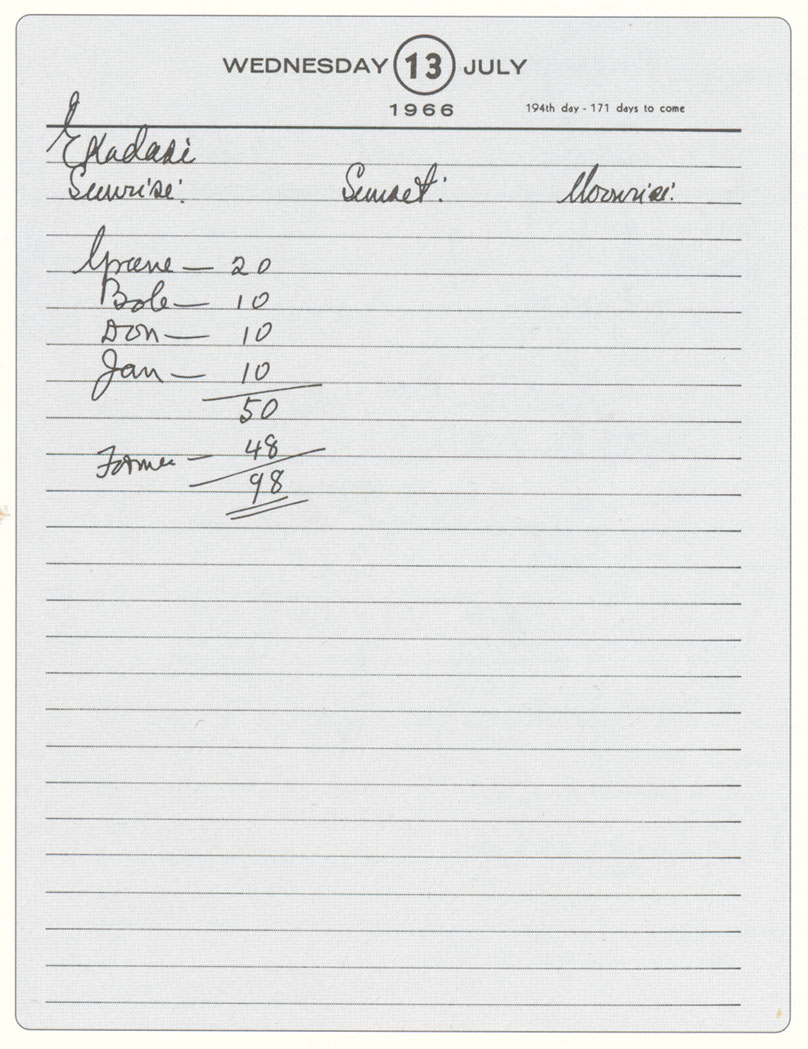 WEDNESDAY 13 JULY
1966 194th day - 171 days to come
Ekadasi
Sunrise: Sunset: Moonrise:
— 20
Bob — 10
Don — 10
Jan — 10
50
Former — 48
98